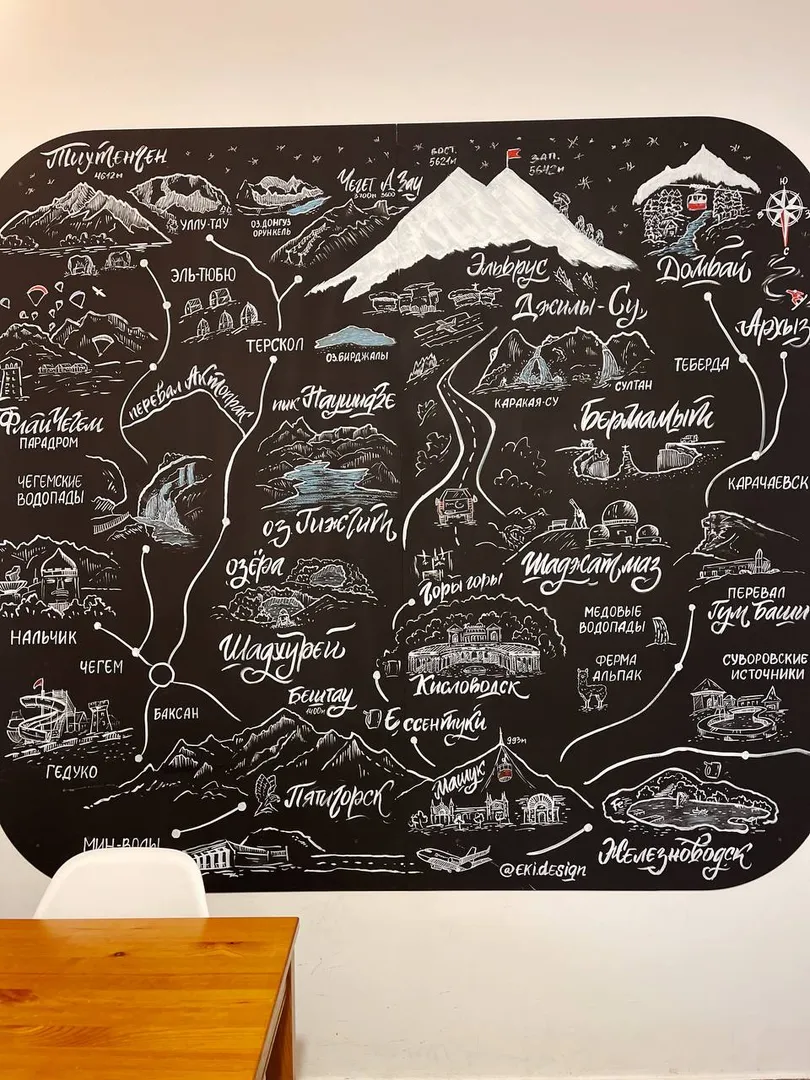 Тиутенген
4612м
УЛЛУ-ТАУ
ОЗ.ДОНГУЗ
ОРУНКЕЛЬ
Чегет Азау
3700м 3600
ВОСТ.
5621м
ЗАП.
5642м
Эльбрус
Домбай
Ю
С
Архыз
ЭЛЬ-ТЮБЮ
ТЕРСКОЛ
ОЗ.БИРДЖАЛЫ
Джилы-Су
КАРАКАЯ-СУ
СУЛТАН
ТЕБЕРДА
ФлайЧегем
ПАРАДРОМ
перевал Актопрак
пик Наушидзе
Бермамыт
ЧЕГЕМСКИЕ
ВОДОПАДЫ
оз Гижгит
КАРАЧАЕВСК
озёра
Шадхурей
Горы горы
Шаджатмаз
ПЕРЕВАЛ
Гум Баши
НАЛЬЧИК
ЧЕГЕМ
БАКСАН
Кисловодск
МЕДОВЫЕ
ВОДОПАДЫ
ФЕРМА
АЛЬПАК
СУВОРОВСКИЕ
ИСТОЧНИКИ
Бештау
1400м
Ессентуки
ГЕДУКО
Пятигорск
Машук
993м
МИН-ВОДЫ
@eki.design
Железноводск